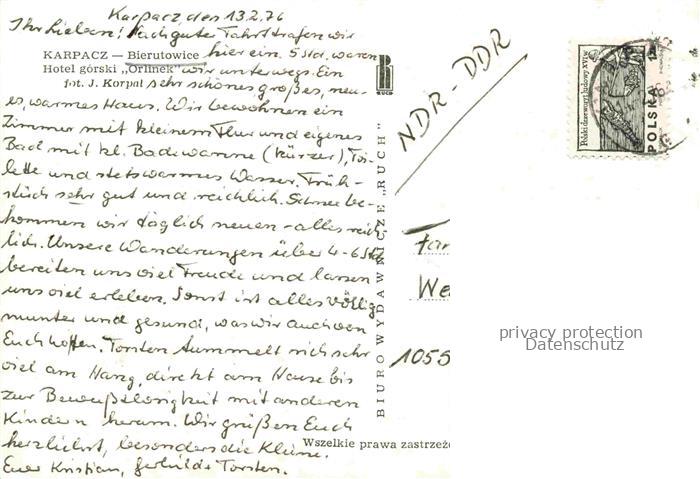 Karpacz, den 13.2.76
Ihr Lieben! Nach guter Fahrt trafen wir
KARPACZ — Bierutowice hier ein. 5 Std. waren
Hotel górski „Orlinek" wir unterwegs. Ein
fot. J. Korpal sehr schönes großes, neu-
es, warmes Haus. Wir bewohnen ein
Zimmer mit kleinem Flur und eigenes
Bad mit kl. Badewanne (kürzer), Toi-
lette und stets warmes Wasser. Früh-
stück sehr gut und reichlich. Schnee be-
kommen wir täglich neuen - alles reich-
lich. Unsere Wanderungen über 4-6 Std
bereiten uns viel Freude und lassen
uns viel erleben. Sonst ist alles völlig
munter und gesund, was wir auch von
Euch hoffen. Torsten tummelt sich sehr
viel am Hang, direkt am Hause bis
zur Bewußtlosigkeit mit anderen
Kindern herum. Wir grüßen Euch
herzlichst, besonders die Kleine.
Euer Kristian, Gerhild & Torsten.
RUCH
BIURO WYDAWNICZE „RUCH"
NDR - DDR
Polski drzeworyt ludowy XVI w.
POLSKA
Fam
We
1055
privacy protection
Datenschutz
Wszelkie prawa zastrzeżo